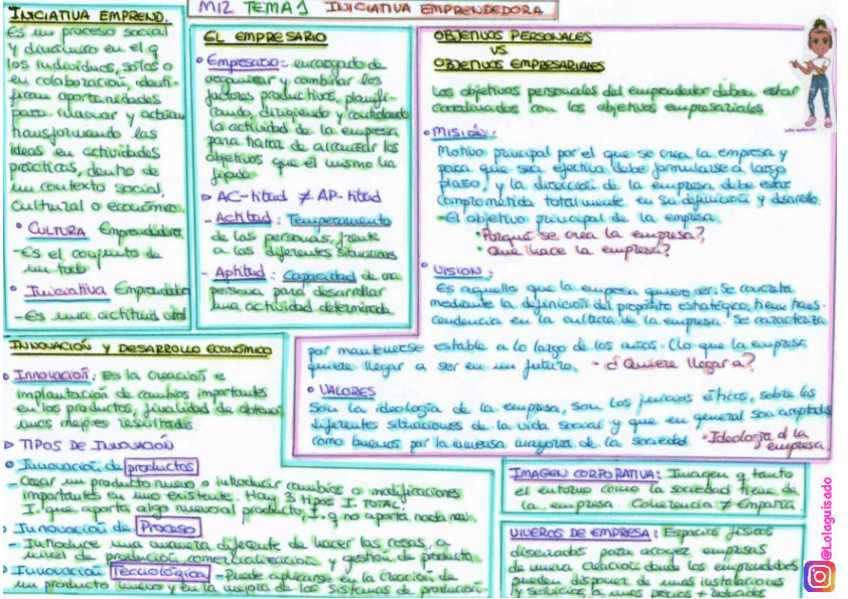 M12 TEMA 1 INICIATIVA EMPRENDEDORA
INICIATIVA EMPREND.
Es un proceso social
y dinámico en el q
los individuos, solos o
en colaboración, identi-
fican oportunidades
para innovar y actúan
transformando las
ideas en actividades
prácticas, dentro de
un contexto social,
cultural o económico
• CULTURA Emprendedora
-Es el conjunto de
un todo
• Iniciativa Emprendedora
-Es una actitud vital
EL EMPRESARIO
• Empresario: encargado de
organizar y combinar los
factores productivos, planifi-
cando, dirigiendo y controlando
la actividad de la empresa
para tratar de alcanzar los
objetivos que él mismo ha
fijado
▷ AC-titud ≠ AP-titud
- Actitud: Temperamento
de las personas, frente
a las diferentes situaciones
- Aptitud: Capacidad de una
persona para desarrollar
una actividad determinada
OBJETIVOS PERSONALES
VS.
OBJETIVOS EMPRESARIALES
Los objetivos personales del emprendedor deben estar
coordinados con los objetivos empresariales
• MISIÓN:
Motivo principal por el que se crea la empresa y
para que sea efectiva debe formularse a largo
plazo, y la dirección de la empresa debe estar
comprometida totalmente en su definición y desarrollo
-El objetivo principal de la empresa.
• Porqué se crea la empresa?
• Que hace la empresa?
• VISION:
Es aquello que la empresa quiere ser. Se concreta
mediante la definición del propósito estratégico, tiene trans-
cendencia en la cultura de la empresa. Se caracteriza
por mantenerse estable a lo largo de los años. (lo que la empresa
quiere llegar a ser en un futuro. - ¿Quiere llegar a?
• VALORES
Son la ideología de la empresa, son los juicios éticos, sobre las
diferentes situaciones de la vida social y que en general son aceptados
como buenos por la inmensa mayoría de la sociedad. • Ideología d la
empresa
INNOVACIÓN Y DESARROLLO ECONÓMICO
• Innovación: Es la creación e
implantación de cambios importantes
en los productos, finalidad de obtener
unos mejores resultados
▷ TIPOS DE INNOVACIÓN
• Innovación de productos
- Crear un producto nuevo o introducir cambios o modificaciones
importantes en uno existente. Hay 3 tipos I. TOTAL,
I. que aporta algo nuevo al producto, I. q no aporta nada nuevo.
• Innovación de Proceso
- Introduce una manera diferente de hacer las cosas, a
nivel de producción, comercialización y gestión de producto
• Innovación Tecnológica - Puede aplicarse en la creación de
un producto nuevo y en la mejora de los sistemas de producción
IMAGEN CORPORATIVA: Imagen q tanto
el entorno como la sociedad tiene de
la empresa Coherencia ≠ Empatía
VIVEROS DE EMPRESA: Espacios físicos
diseñados para acoger empresas
de nueva creación donde los emprendedores
pueden disponer de unas instalaciones
y servicios, a unos precios + reducidos
@Lolaguisado